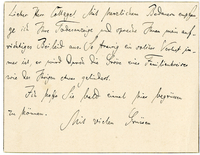 Lieber Herr College! Mit herzlichem Bedauern empfange
ich Ihre Todesanzeige und spreche Ihnen mein aufrichtiges
Beileid aus. So traurig ein solcher Verlust
immer ist, er wird durch die eines Familienkreises
wie des Ihrigen etwas gelindert.
Ich hoffe Sie bald einmal hier begrüssen
zu können.
Mit vielen Grüssen